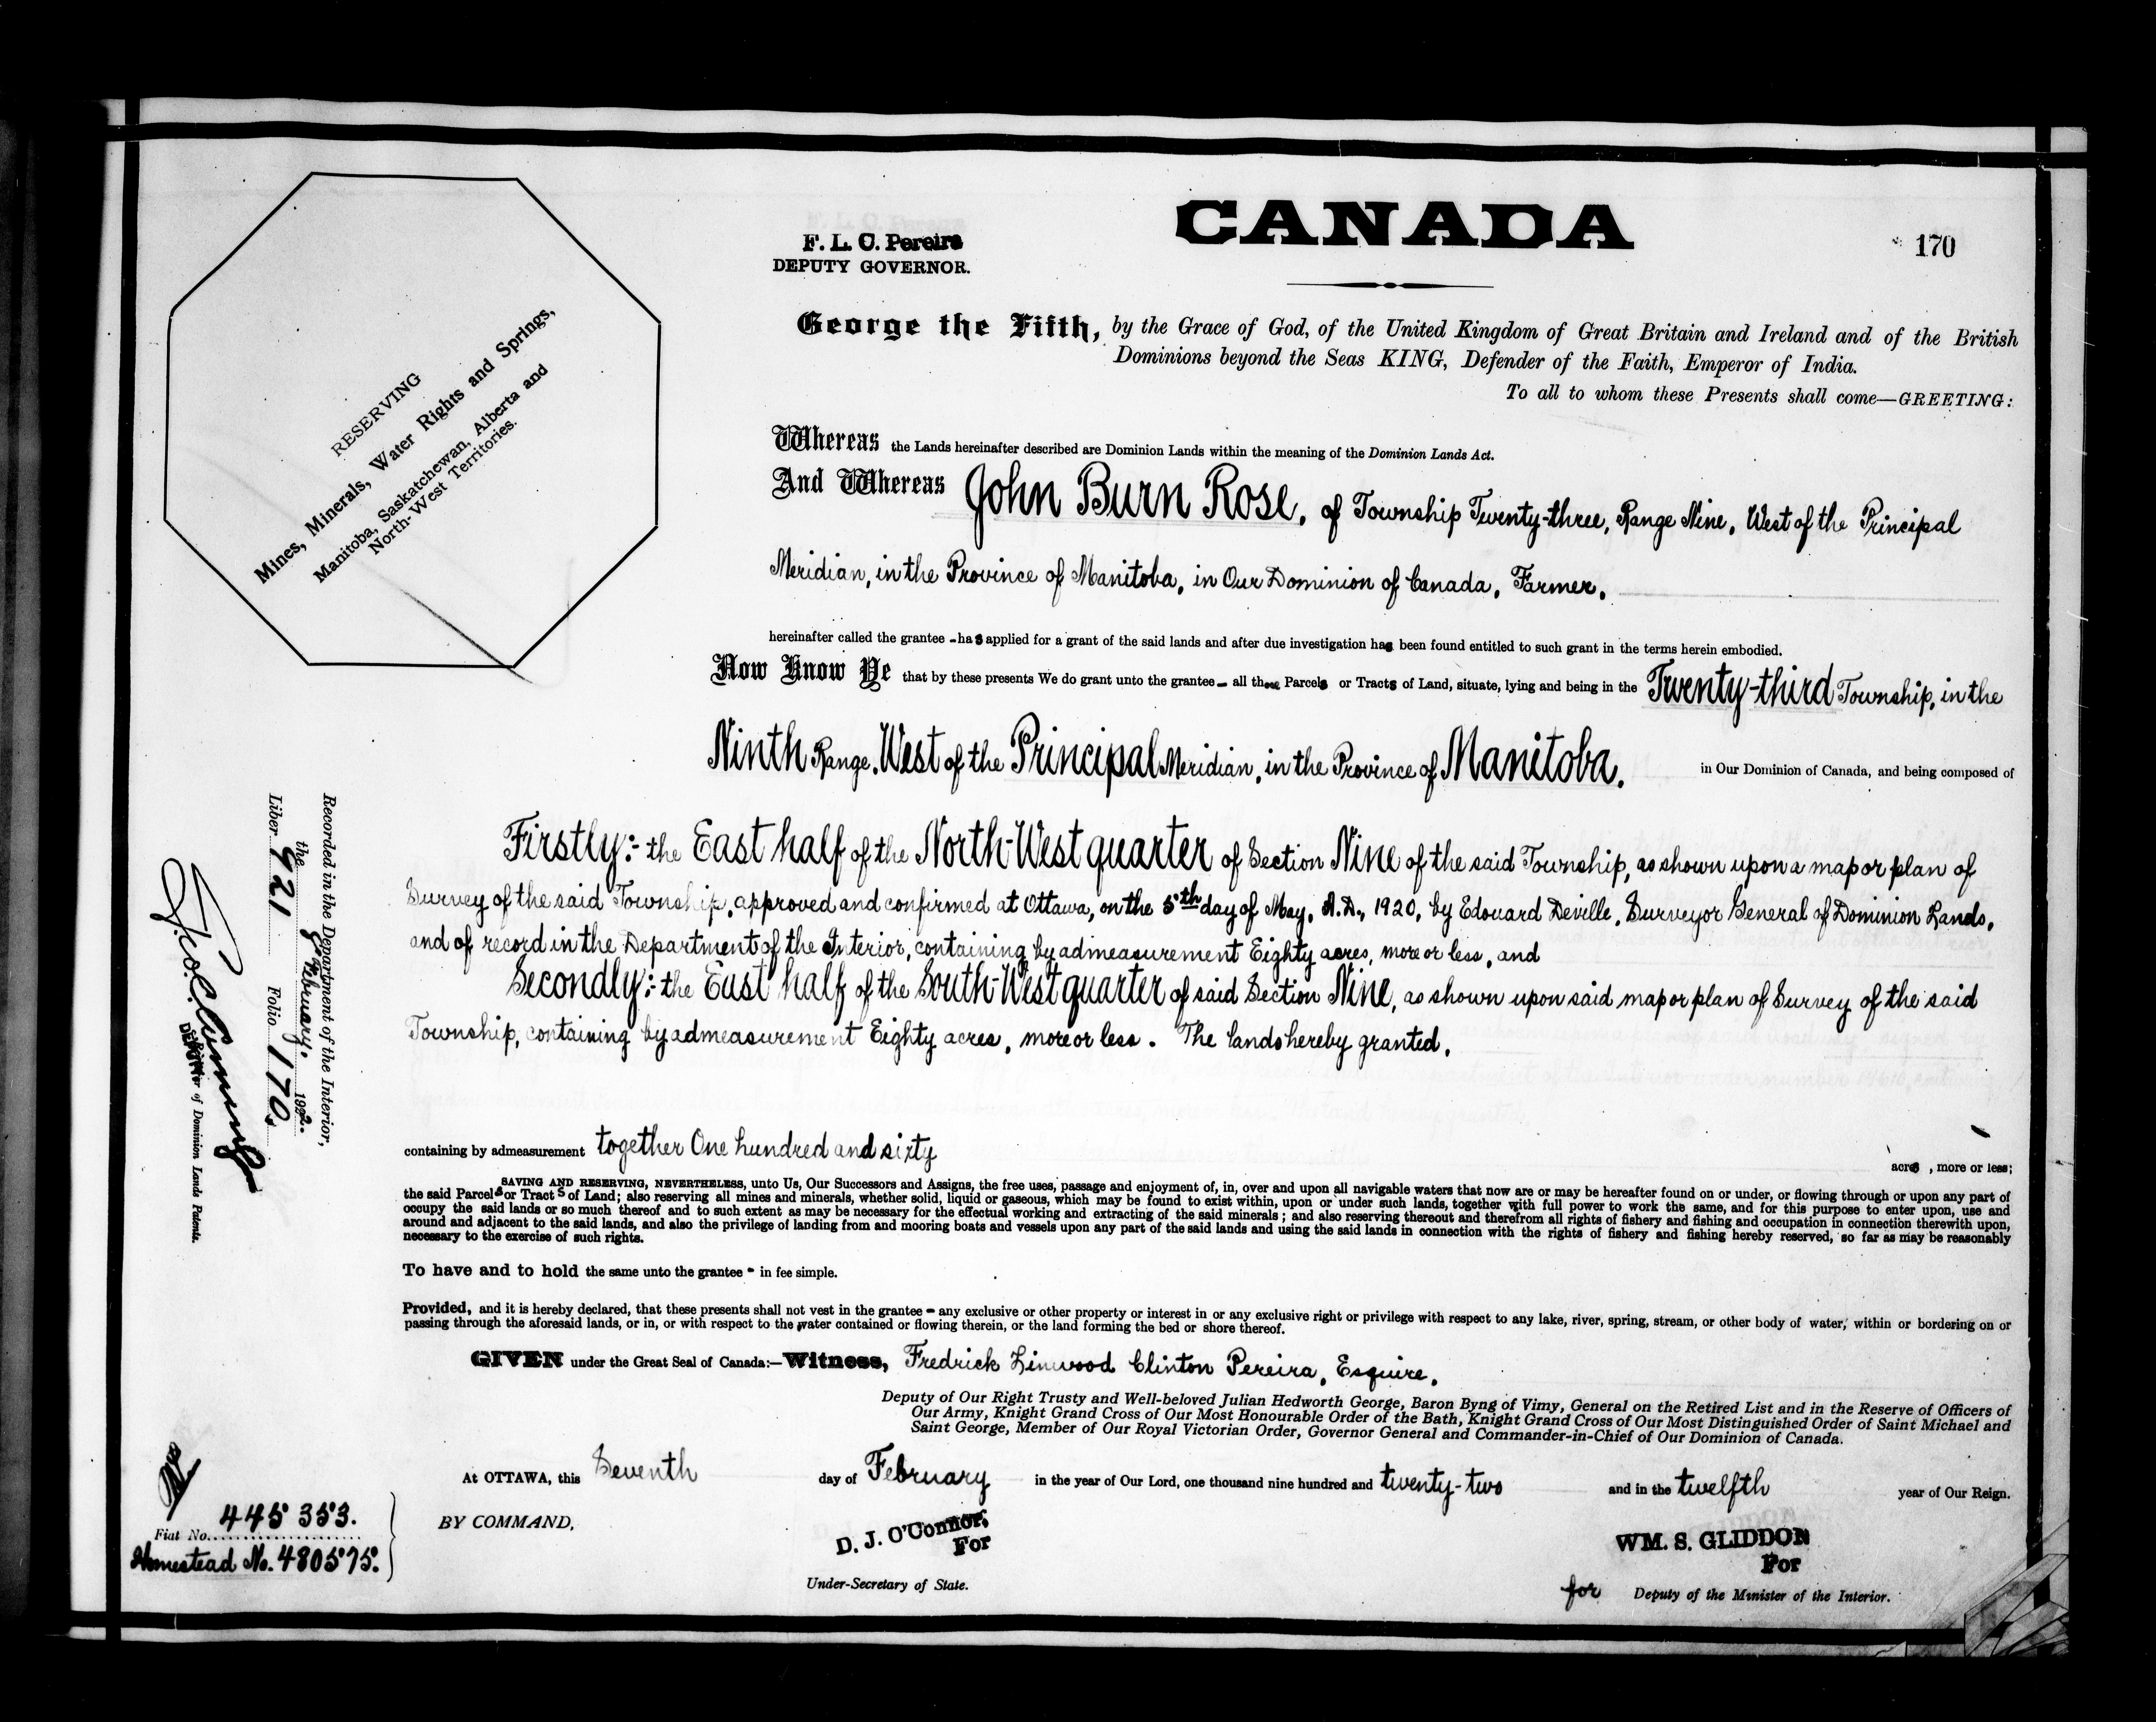 CANADA
170
F. L. C. Pereira
DEPUTY GOVERNOR.
RESERVING
Mines, Minerals, Water Rights and Springs,
Manitoba, Saskatchewan, Alberta and
North-West Territories.
George the Fifth, by the Grace of God, of the United Kingdom of Great Britain and Ireland and of the British
Dominions beyond the Seas KING, Defender of the Faith, Emperor of India.
To all to whom these Presents shall come—GREETING:
Whereas the Lands hereinafter described are Dominion Lands within the meaning of the Dominion Lands Act.
And Whereas John Burn Rose, of Township Twenty-three, Range Nine, West of the Principal
Meridian, in the Province of Manitoba, in Our Dominion of Canada, Farmer.
hereinafter called the grantee - has applied for a grant of the said lands and after due investigation has been found entitled to such grant in the terms herein embodied.
Now Know Ye that by these presents We do grant unto the grantee - all those Parcels or Tracts of Land, situate, lying and being in the Twenty-third Township, in the
Ninth Range, West of the Principal Meridian, in the Province of Manitoba, in Our Dominion of Canada, and being composed of
Firstly:- the East half of the North-West quarter of Section Nine of the said Township, as shown upon a map or plan of
Survey of the said Township, approved and confirmed at Ottawa, on the 5th day of May, A.D., 1920, by Edouard Deville, Surveyor General of Dominion Lands,
and of record in the Department of the Interior, containing by admeasurement Eighty acres, more or less, and
Secondly:- the East half of the South-West quarter of said Section Nine, as shown upon said map or plan of Survey of the said
Township, containing by admeasurement Eighty acres, more or less. The lands hereby granted,
containing by admeasurement together One hundred and sixty acres, more or less;
SAVING AND RESERVING, NEVERTHELESS, unto Us, Our Successors and Assigns, the free uses, passage and enjoyment of, in, over and upon all navigable waters that now are or may be hereafter found on or under, or flowing through or upon any part of
the said Parcels or Tracts of Land; also reserving all mines and minerals, whether solid, liquid or gaseous, which may be found to exist within, upon or under such lands, together with full power to work the same, and for this purpose to enter upon, use and
occupy the said lands or so much thereof and to such extent as may be necessary for the effectual working and extracting of the said minerals; and also reserving thereout and therefrom all rights of fishery and fishing and occupation in connection therewith upon,
around and adjacent to the said lands, and also the privilege of landing from and mooring boats and vessels upon any part of the said lands and using the said lands in connection with the rights of fishery and fishing hereby reserved, so far as may be reasonably
necessary to the exercise of such rights.
To have and to hold the same unto the grantee - in fee simple.
Provided, and it is hereby declared, that these presents shall not vest in the grantee - any exclusive or other property or interest in or any exclusive right or privilege with respect to any lake, river, spring, stream, or other body of water, within or bordering on or
passing through the aforesaid lands, or in, or with respect to the water contained or flowing therein, or the land forming the bed or shore thereof.
GIVEN under the Great Seal of Canada:—Witness, Fredrick Linwood Clinton Pereira, Esquire,
Deputy of Our Right Trusty and Well-beloved Julian Hedworth George, Baron Byng of Vimy, General on the Retired List and in the Reserve of Officers of
Our Army, Knight Grand Cross of Our Most Honourable Order of the Bath, Knight Grand Cross of Our Most Distinguished Order of Saint Michael and
Saint George, Member of Our Royal Victorian Order, Governor General and Commander-in-Chief of Our Dominion of Canada.
At OTTAWA, this Seventh day of February in the year of Our Lord, one thousand nine hundred and twenty-two and in the twelfth year of Our Reign.
BY COMMAND,
D. J. O'Connor,
For
Under-Secretary of State.
WM. S. GLIDDON
For
for Deputy of the Minister of the Interior.
Recorded in the Department of the Interior,
the 8 February, 1922.
Liber 921 Folio 170.
DEPUTY
of Dominion Lands Patents.
Fiat No. 445353.
Homestead No. 480575.